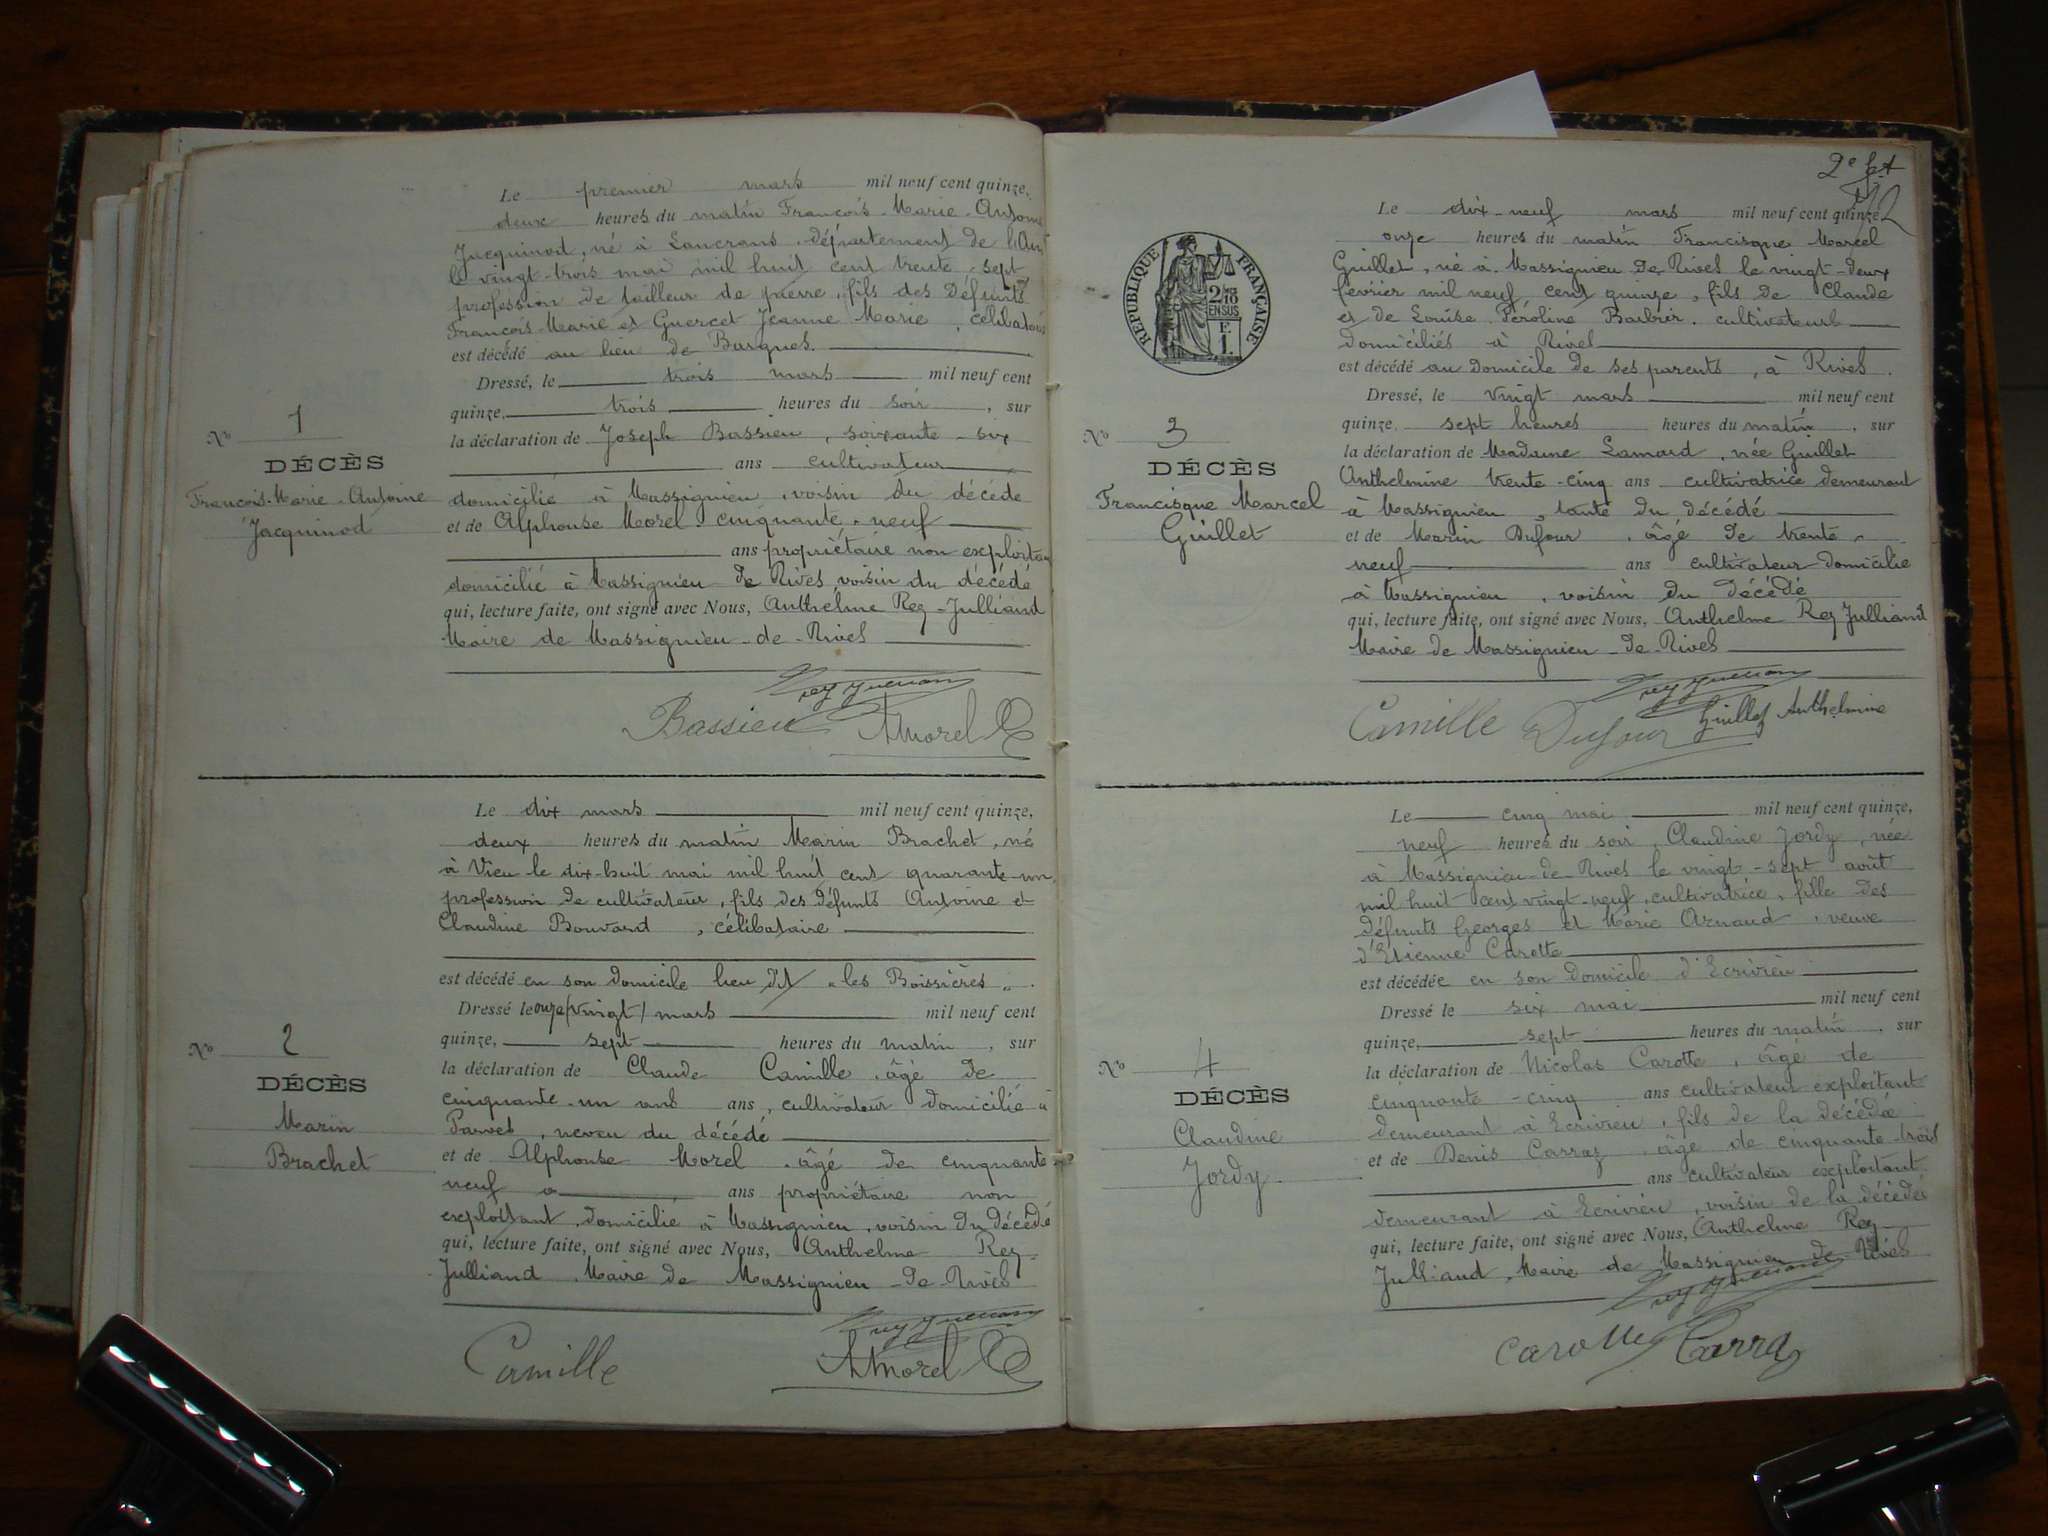 Le premier mars mil neuf cent quinze,
deux heures du matin François-Marie-Antoine
Jacquinod, né à Lancrans, département de l'Ain
le vingt-trois mai mil huit cent trente-sept
profession de tailleur de pierre, fils des défunts
François-Marie et Guercet Jeanne Marie, célibataire
est décédé au lieu de Bargues.
Dressé, le trois mars mil neuf cent
quinze, trois heures du soir, sur
la déclaration de Joseph Bassieu, soixante-six
ans cultivateur
domicilié à Massignieu, voisin du décédé
et de Alphonse Morel, cinquante-neuf
ans propriétaire non exploitan
domicilié à Massignieu de Rives, voisin du décédé
qui, lecture faite, ont signé avec Nous, Anthelme Rey-Julliand
Maire de Massignieu-de-Rives
No 1
DÉCÈS
François-Marie-Antoine
Jacquinod
Bassieu AMorel
Le dix mars mil neuf cent quinze,
deux heures du matin Marin Brachet, né
à Vieu le dix-huit mai mil huit cent quarante-un,
profession de cultivateur, fils des défunts Antoine et
Claudine Bouvard, célibataire
est décédé en son domicile lieu dit "les Boissières".
Dressé le onze (vingt) mars mil neuf cent
quinze, sept heures du matin, sur
la déclaration de Claude Camille, âgé de
cinquante-un ans ans, cultivateur domicilié à
Parves, neveu du décédé
et de Alphonse Morel, âgé de cinquante
neuf ans propriétaire non
exploitant, domicilié à Massignieu, voisin du décédé
qui, lecture faite, ont signé avec Nous, Anthelme Rey-
Julliand, Maire de Massignieu-de-Rives
No 2
DÉCÈS
Marin
Brachet
Camille AMorel
2e
RÉPUBLIQUE FRANÇAISE
2/10
EN SUS
E.
1.
Le dix-neuf mars mil neuf cent quinze
onze heures du matin Francisque Marcel
Guillet, né à Massignieu-de-Rives le vingt-deux
février mil neuf cent quinze, fils de Claude
et de Louise Péroline Barbier, cultivateurs
domiciliés à Rives
est décédé au domicile de ses parents, à Rives.
Dressé, le vingt mars mil neuf cent
quinze, sept heures heures du matin, sur
la déclaration de Madame Lamard, née Guillet
Anthelmine trente-cinq ans cultivatrice demeurant
à Massignieu, tante du décédé
et de Marin Dufour, âgé de trente-
neuf ans cultivateur domicilié
à Massignieu, voisin du décédé
qui, lecture faite, ont signé avec Nous, Anthelme Rey Julliand
Maire de Massignieu-de-Rives
No 3
DÉCÈS
Francisque Marcel
Guillet
Camille Dufour Guillet Anthelmine
Le cinq mai mil neuf cent quinze,
neuf heures du soir, Claudine Jordy, née
à Massignieu-de-Rives le vingt-sept août
mil huit cent vingt-neuf, cultivatrice, fille des
défunts Georges et Marie Arnaud, veuve
d'Etienne Carotte
est décédée en son domicile d'Ecrivieu
Dressé le six mai mil neuf cent
quinze, sept heures du matin, sur
la déclaration de Nicolas Carotte, âgé de
cinquante-cinq ans cultivateur exploitant
demeurant à Ecrivieu, fils de la décédée
et de Denis Carraz, âgé de cinquante-trois
ans cultivateur exploitant
demeurant à Ecrivieu, voisin de la décédée
qui, lecture faite, ont signé avec Nous, Anthelme Rey
Julliand, Maire de Massignieu de Rives
No 4
DÉCÈS
Claudine
Jordy.
Carotte Carraz